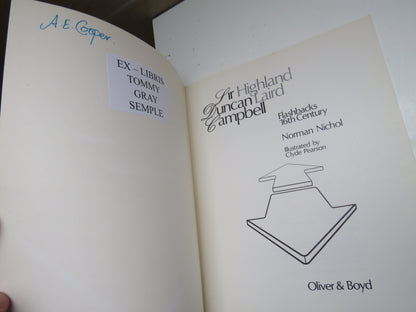 A E Cooper.
EX – LIBRIS
TOMMY
GRAY
SEMPLE
Sir Highland
Duncan Laird
Campbell
Flashbacks
16th Century
Norman Nichol
Illustrated by
Clyde Pearson
Oliver & Boyd